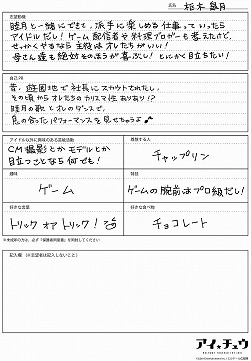 氏名 柘木 皐月
志望動機
睦月と一緒にできて、派手に楽しめる仕事っていったら
アイドルだし！ゲーム配信者や料理ブロガーも考えたけど、
せっかくやるなら主役はオレたちがいい！
母さん達も絶対そのほうが喜ぶし！とにかく目立ちたい！
自己PR
昔、遊園地で社長にスカウトされたし、
その頃からオレたちのカリスマ性ありあり！？
睦月の歌とオレのダンスで、
息の合ったパフォーマンスを見せちゃうよ♪
アイドル以外に興味のある芸能活動
CM撮影とかモデルとか
目立つことなら何でも！
尊敬する人
チャップリン
趣味
ゲーム
特技
ゲームの腕前はプロ級だし！
好きな言葉
トリック オア トリック！
好きな食べ物
チョコレート
※未成年の方は、必ず「保護者同意書」を同封してください
記入欄（※志望者は記入しないこと）
アイ★チュウ